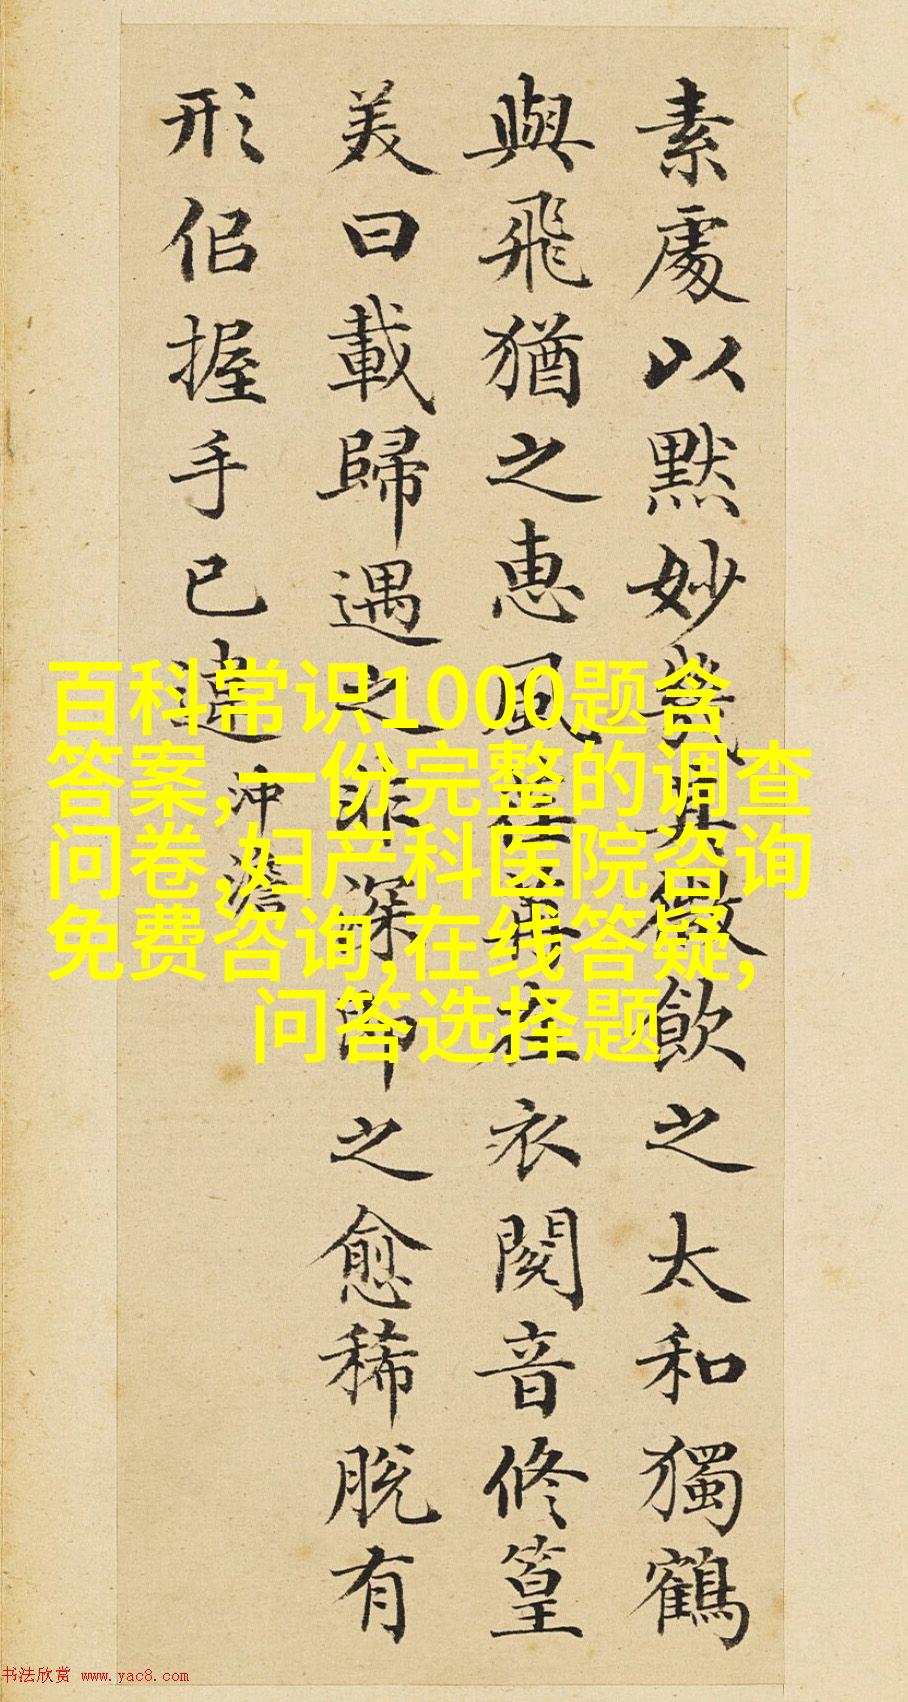 素處以默妙幾其微飲之太和獨鶴
與飛猶之惠風荏苒在衣閱音修篁
美曰載歸遇之非深即之愈稀脫有
形佀握手已違
沖澹
百科常识1000题含
答案,一份完整的调查
问卷,妇产科医院咨询
免费咨询,在线答疑,
问答选择题
书法欣赏 www.yac8.com